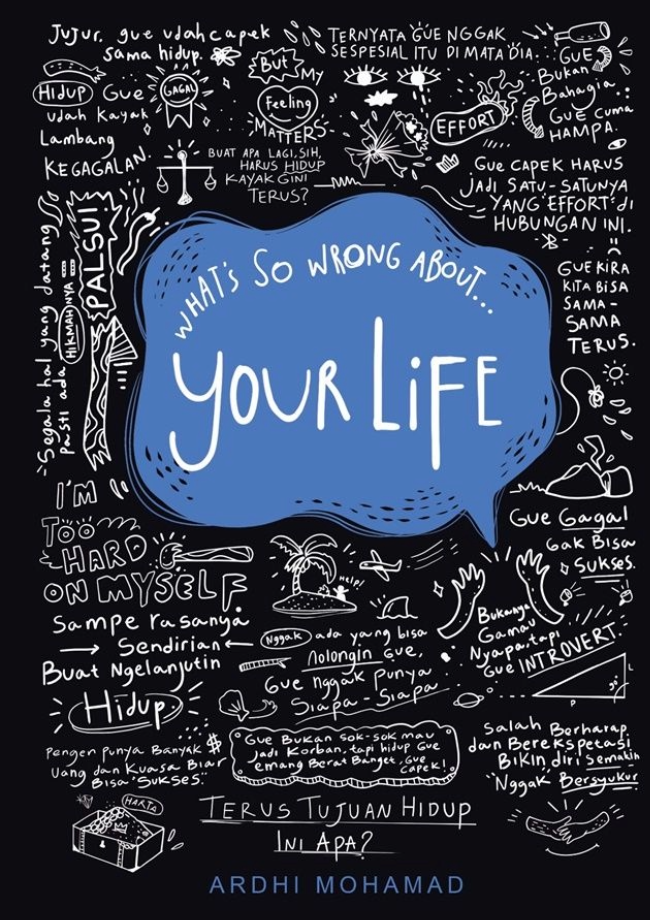 Jujur, gue udah capek
sama hidup.
TERNYATA GUE NGGAK
SESPESIAL ITU DI MATA DIA.
But
MY
Feeling
MATTERS
GUE
Bukan
Bahagia
GUE CUMA
HAMPA.
Hidup Gue
udah kayak
Lambang
KEGAGALAN.
GAGAL
EFFORT
BUAT APA LAGI, SIH,
HARUS HIDUP
KAYAK GINI
TERUS?
GUE CAPEK HARUS
JADI SATU-SATUNYA
YANG EFFORT DI
HUBUNGAN INI.
"Segala hal yang datang
pasti ada HIKMAHNYA
PALSU!
WHAT'S SO WRONG ABOUT...
YOUR LIFE
GUE KIRA
KITA BISA
SAMA-
SAMA
TERUS.
I'M
TOO
HARD
ON MYSELF
Gue Gagal
Gak Bisa
SUKSES.
Help!
Sampe rasanya
Sendirian
Buat Ngelanjutin
Hidup
Nggak ada yang bisa
nolongin Gue,
Gue nggak punya
Siapa-Siapa
Bukannya
Gamau
Nyapa, tapi
Gue INTROVERT.
Pengen punya Banyak $
Uang dan Kuasa Biar
Bisa "SUKSES"
Gue Bukan Sok-sok mau
jadi Korban, tapi hidup Gue
emang Berat Banget, Gue
CAPEK!
Salah Berharap
dan Berekspetasi
BIKIN diri Semakin
Nggak Bersyukur
HARTA
TERUS TUJUAN HIDUP
INI APA?
ARDHI MOHAMAD